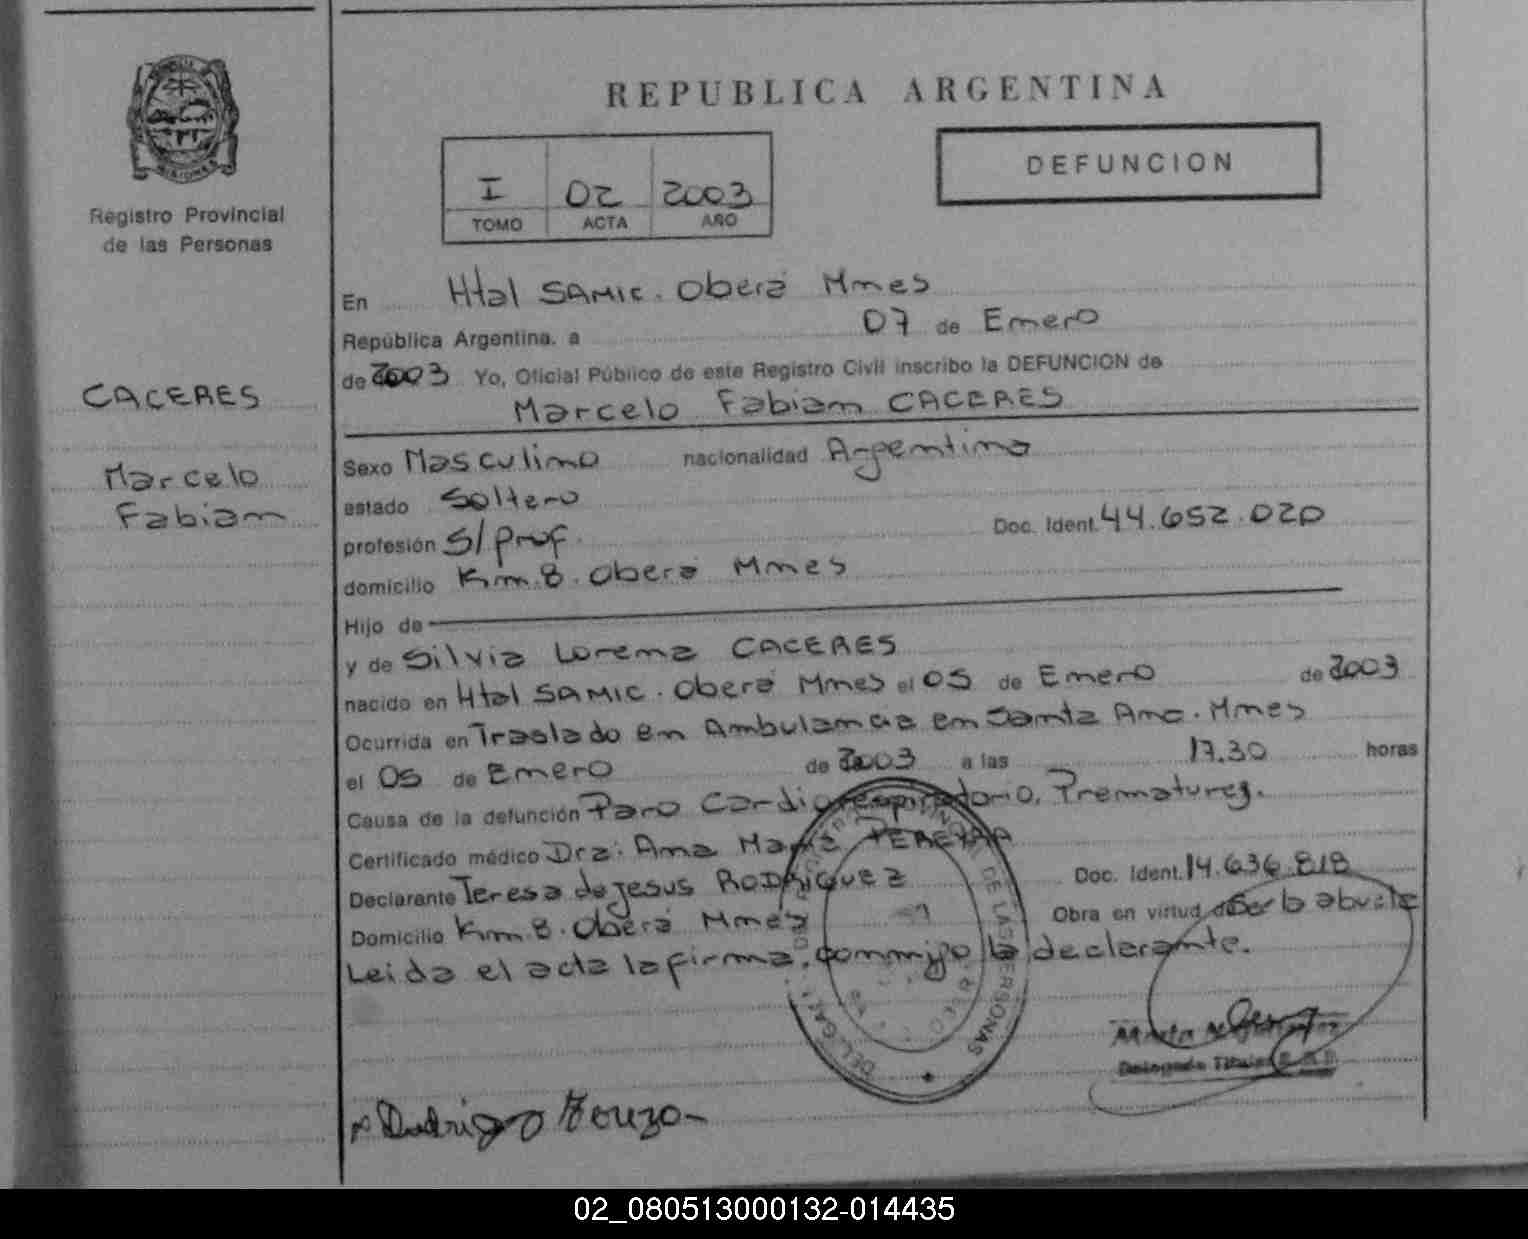 REPUBLICA ARGENTINA
MISIONES
Registro Provincial
de las Personas
I 02 2003
TOMO ACTA AÑO
DEFUNCION
CACERES
Marcelo
Fabian
En Htal SAMIC. Oberá Mnes
República Argentina, a 07 de Enero
de 2003 Yo, Oficial Público de este Registro Civil inscribo la DEFUNCION de
Marcelo Fabian CACERES
Sexo Masculino nacionalidad Argentina
estado Soltero
profesión S/prof. Doc. Ident. 44.652.020
domicilio Km.8. Oberá Mnes
Hijo de
y de Silvia Lorena CACERES
nacido en Htal SAMIC. Oberá Mnes el 05 de Enero de 2003
Ocurrida en Traslado en Ambulancia en Santa Ana. Mnes
el 05 de Enero de 2003 a las 17.30 horas
Causa de la defunción Paro Cardiorespiratorio, Prematurez.
Certificado médico Dra. Ana María PEREYRA
Declarante Teresa de Jesus RODRIGUEZ Doc. Ident. 14.636.818
Domicilio Km.8. Oberá Mnes Obra en virtud de Ser la abuela
Leida el acta la firma, conmigo la declarante.
DE LAS PERSONAS
Delegado Titular
02_080513000132-014435